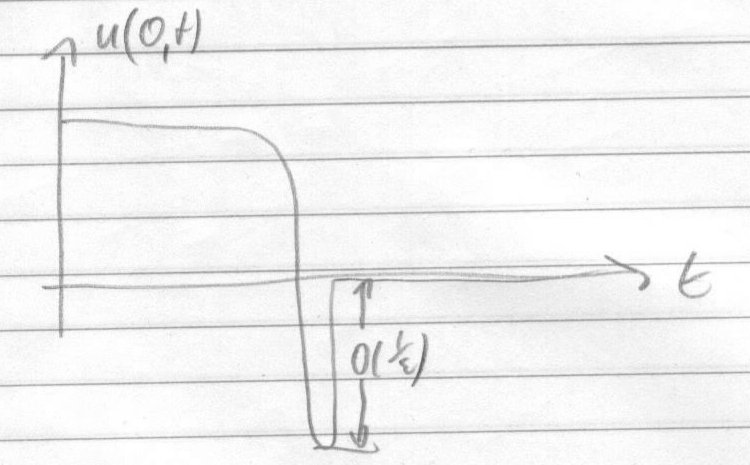 u(0,t)
t
O(1/ε)